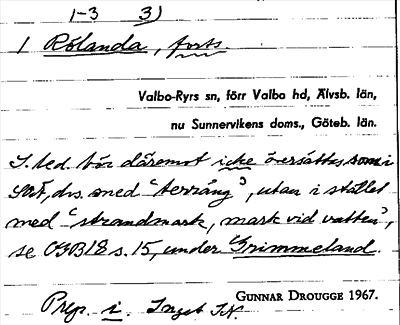 1-3 3)
1 Rölanda, forts.
Valbo-Ryrs sn, förr Valbo hd, Älvsb. län,
nu Sunnervikens doms., Göteb. län.
S. led. bör däremot icke översättas som i
SOÄ, dvs. med "terräng", utan i stället
med "strandmark, mark vid vatten",
se OGB 18 s. 15, under Grimmeland.
GUNNAR DROUGGE 1967.
Prep. i. Inget IN.